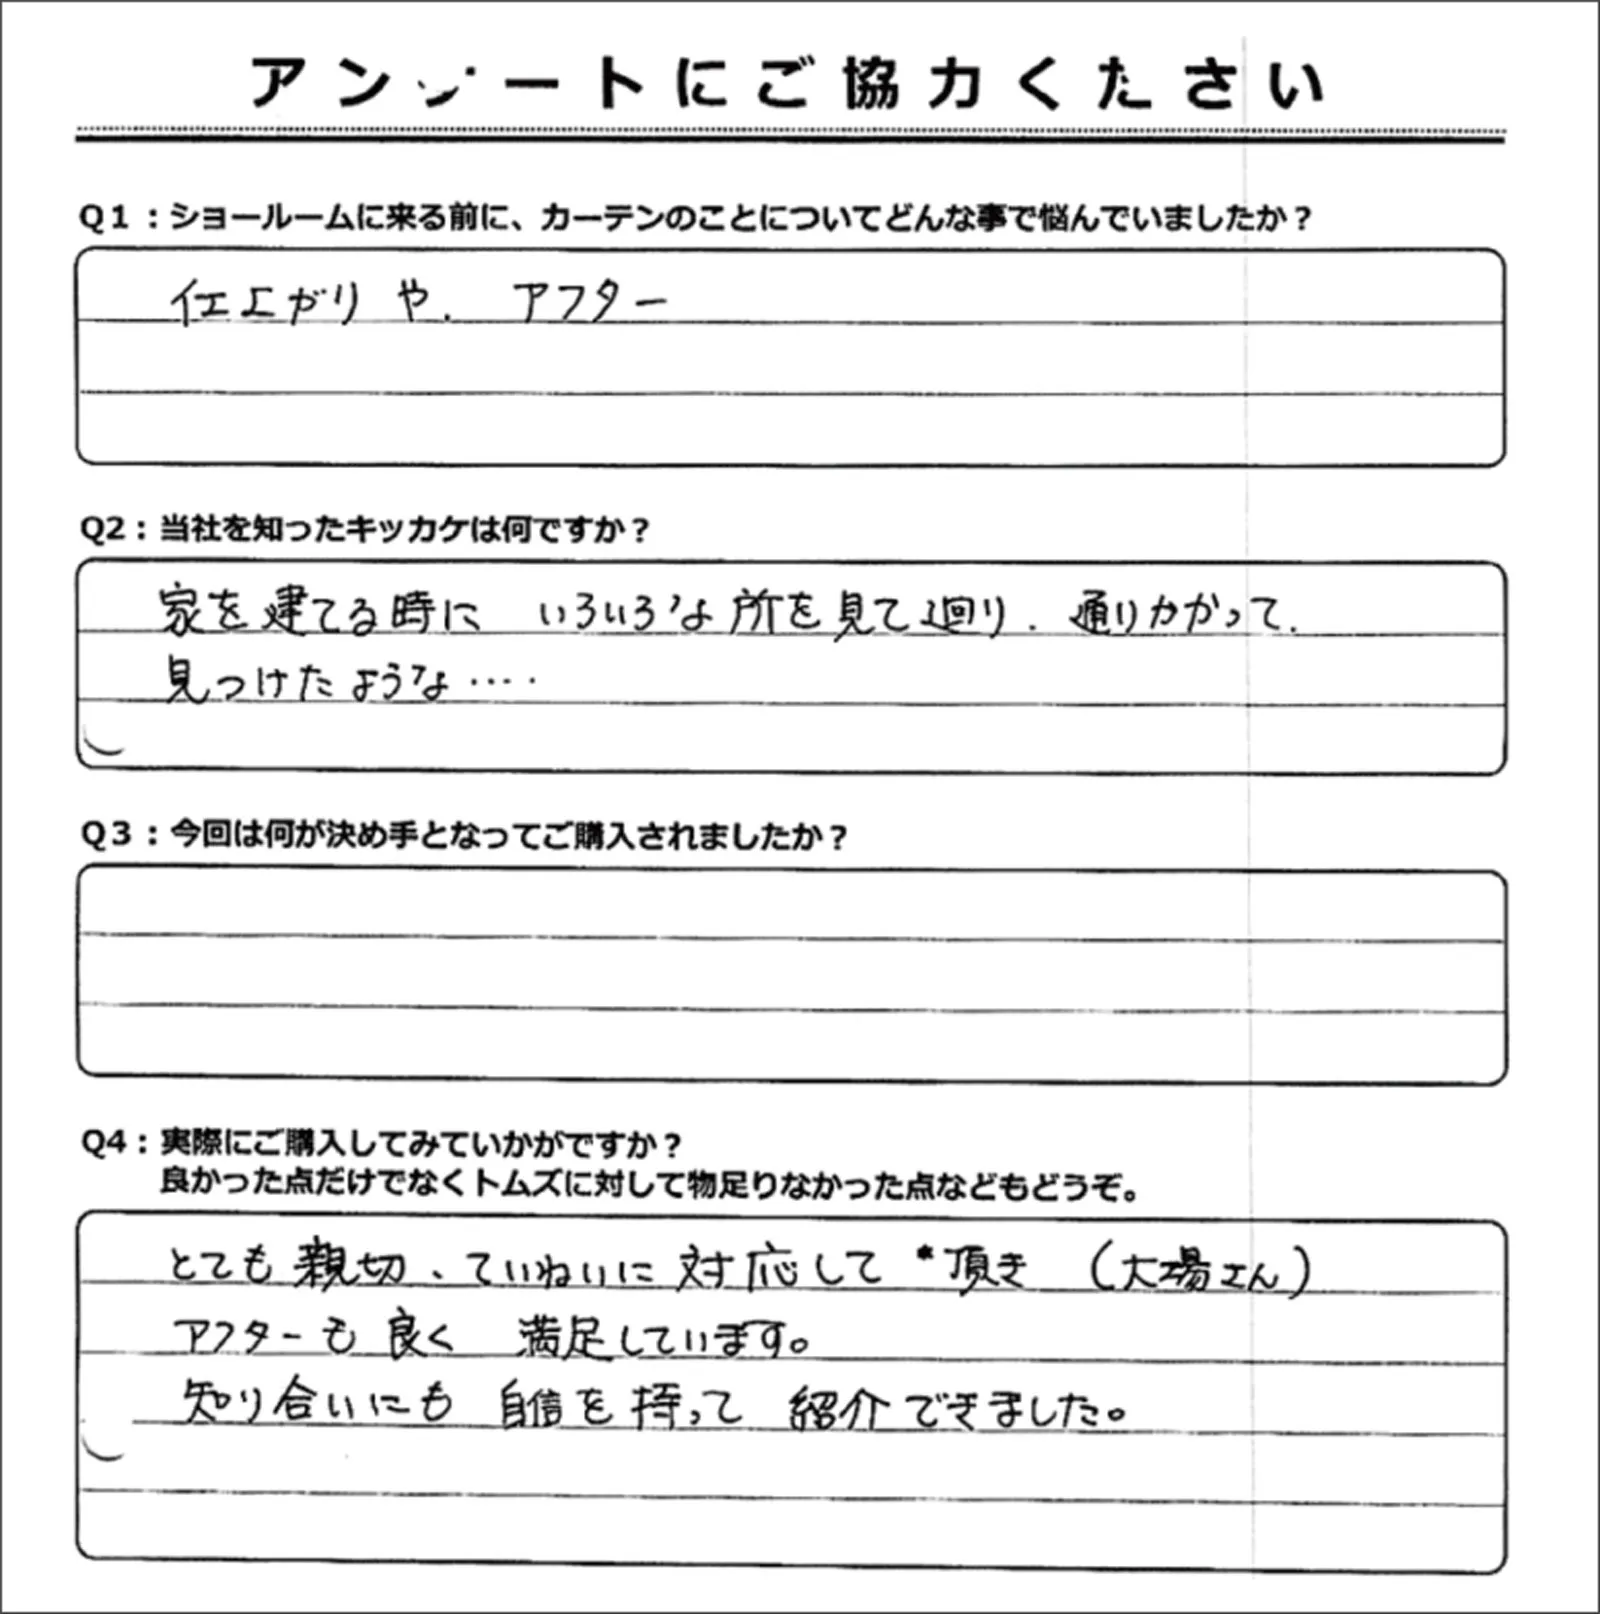 アンケートにご協力ください
Q1：ショールームに来る前に、カーテンのことについてどんな事で悩んでいましたか？
仕上がりや、アフター
Q2：当社を知ったキッカケは何ですか？
家を建てる時に いろいろな所を見て廻り、通りかかって、
見つけたような‥‥
Q3：今回は何が決め手となってご購入されましたか？
Q4：実際にご購入してみていかがですか？
良かった点だけでなくトムズに対して物足りなかった点などもどうぞ。
とても親切、ていねいに対応して頂き （大場さん）
アフターも良く 満足しています。
知り合いにも 自信を持って 紹介できました。